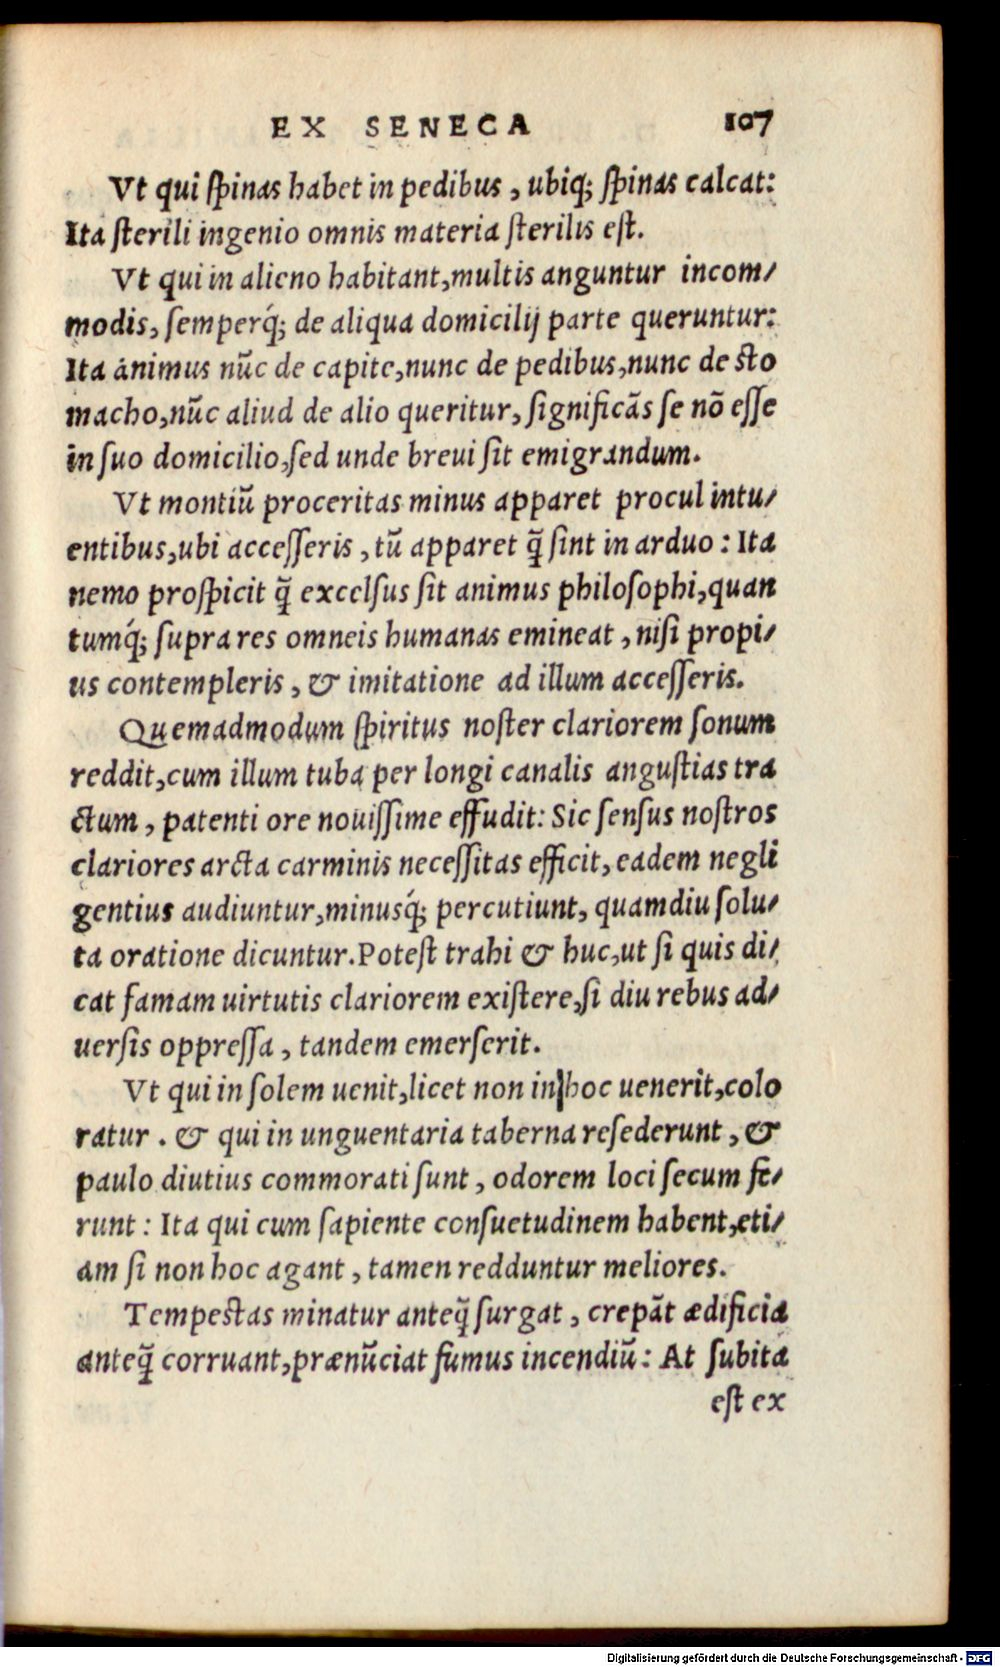 EX SENECA 107
Vt qui ſpinas habet in pedibus, ubiq; ſpinas calcat:
Ita ſterili ingenio omnis materia ſterilis eſt.
Vt qui in alieno habitant, multis anguntur incom/
modis, ſemperq́; de aliqua domicilij parte queruntur:
Ita animus nūc de capite, nunc de pedibus, nunc de ſto
macho, nūc aliud de alio queritur, ſignificās ſe nō eſſe
in ſuo domicilio, ſed unde breui ſit emigrandum.
Vt montiū proceritas minus apparet procul intu/
entibus, ubi acceſſeris, tū apparet q̄ ſint in arduo: Ita
nemo proſpicit q̄ excelſus ſit animus philoſophi, quan
tumq́; ſupra res omneis humanas emineat, niſi propi/
us contempleris, & imitatione ad illum acceſſeris.
Quemadmodum ſpiritus noſter clariorem ſonum
reddit, cum illum tuba per longi canalis anguſtias tra
ctum, patenti ore nouiſſime effudit: Sic ſenſus noſtros
clariores arcta carminis neceſſitas efficit, eadem negli
gentius audiuntur, minusq́; percutiunt, quamdiu ſolu/
ta oratione dicuntur. Poteſt trahi & huc, ut ſi quis di/
cat famam uirtutis clariorem exiſtere, ſi diu rebus ad/
uerſis oppreſſa, tandem emerſerit.
Vt qui in ſolem uenit, licet non in hoc uenerit, colo
ratur. & qui in unguentaria taberna reſederunt, &
paulo diutius commorati ſunt, odorem loci ſecum fe/
runt: Ita qui cum ſapiente conſuetudinem habent, eti/
am ſi non hoc agant, tamen redduntur meliores.
Tempeſtas minatur anteq̄ ſurgat, crepāt ædificia
anteq̄ corruant, prænūciat fumus incendiū: At ſubita
eſt ex
Digitalisierung gefördert durch die Deutsche Forschungsgemeinschaft - DFG